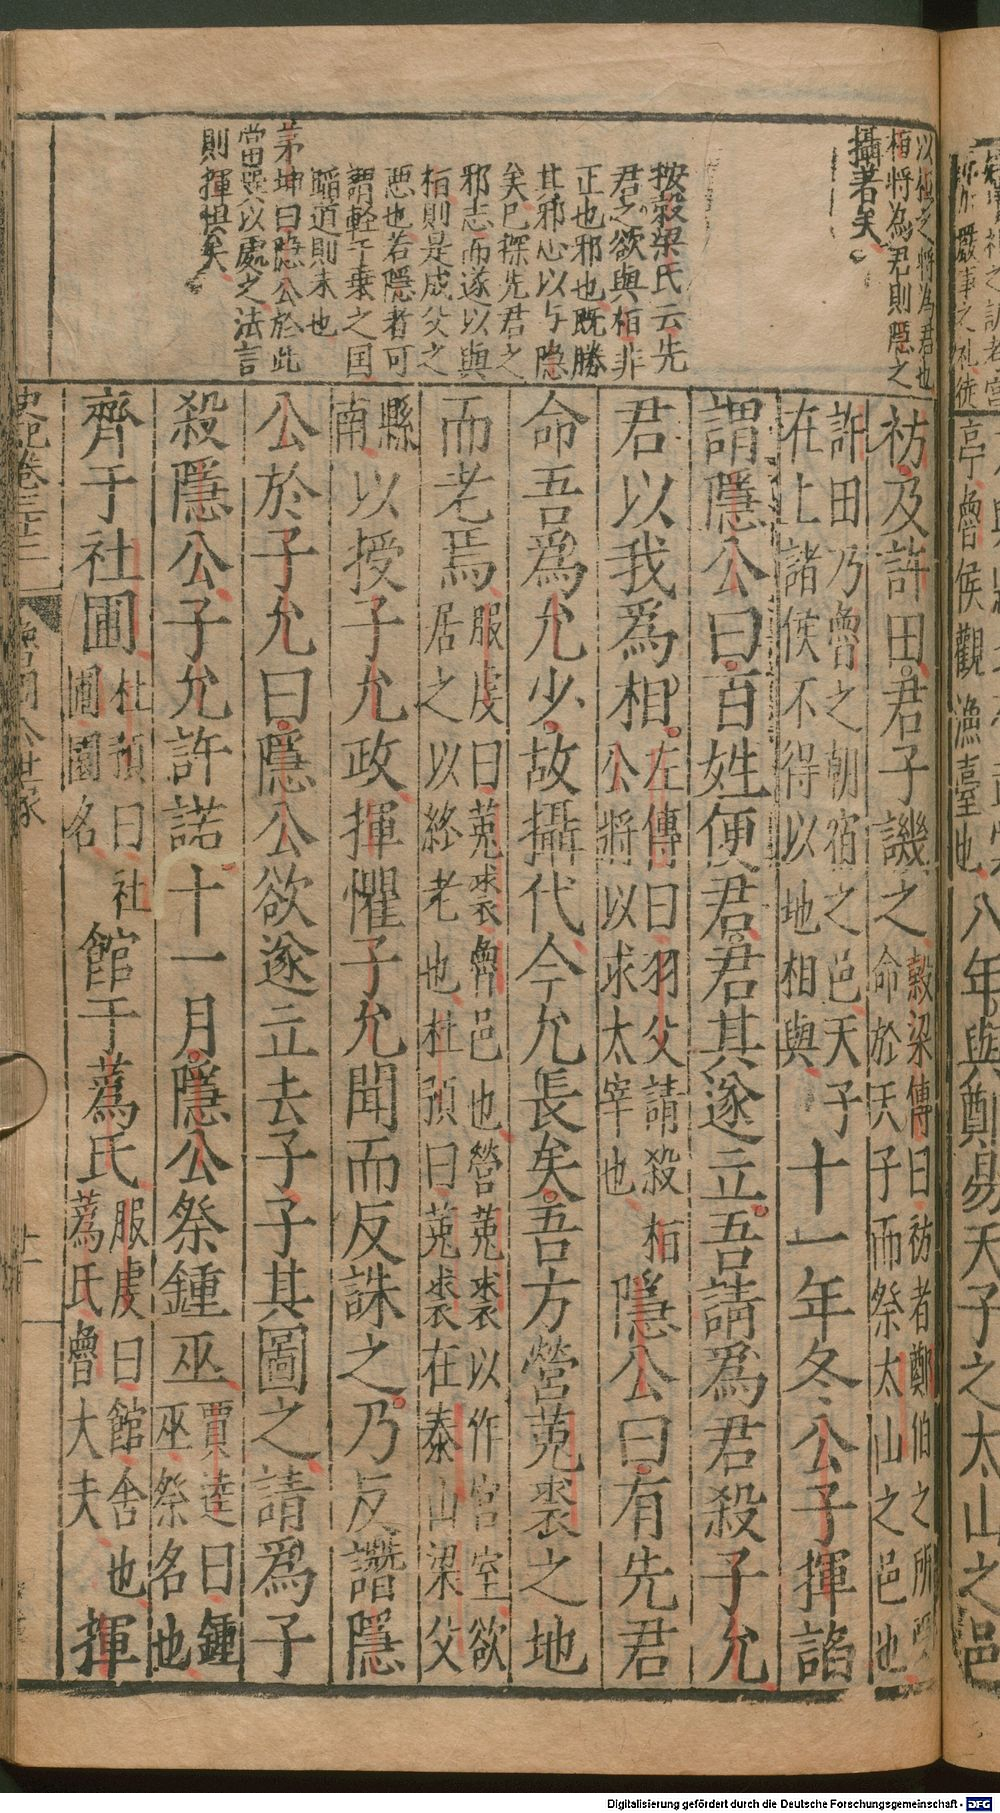 以桓之將為君也
桓將為君則隱之
攝著矣
按穀梁氏云先
君之欲與桓非
正也邪也既勝
其邪心以与隐
矣已探先君之
邪志而遂以與
桓則是成父之
惡也若隱者可
謂輕千乗之国
蹈道則未也
茅坤曰隐公於此
當巽以處之法言
則揮惧矣
八年與鄭易天子之太山之邑
祊及許田君子譏之
穀梁傳曰祊者鄭伯之所受
命於天子而祭太山之邑也
許田乃魯之朝宿之邑天子
在上諸侯不得以地相與
十一年冬公子揮諂
謂隱公曰百姓便君君其遂立吾請為君殺子允
君以我爲相
左傳曰羽父請殺桓
公將以求太宰也
隱公曰有先君
命吾爲允少故攝代今允長矣吾方營菟裘之地
而老焉
服虔曰菟裘魯邑也營菟裘以作宮室欲
居之以終老也杜預曰菟裘在泰山梁父
縣
南
以授子允政揮懼子允聞而反誅之乃反譖隱
公於子允曰隱公欲遂立去子子其圖之請為子
殺隱公子允許諾十一月隱公祭鍾巫
賈逵曰鍾
巫祭名也
齊于社圃
杜預曰社
圃園名
館于蒍氏
服虔曰館舍也
蒍氏魯大夫
揮
史記卷三十三
魯周公世家
亭魯侯觀漁臺也
Digitalisierung gefördert durch die Deutsche Forschungsgemeinschaft - DFG